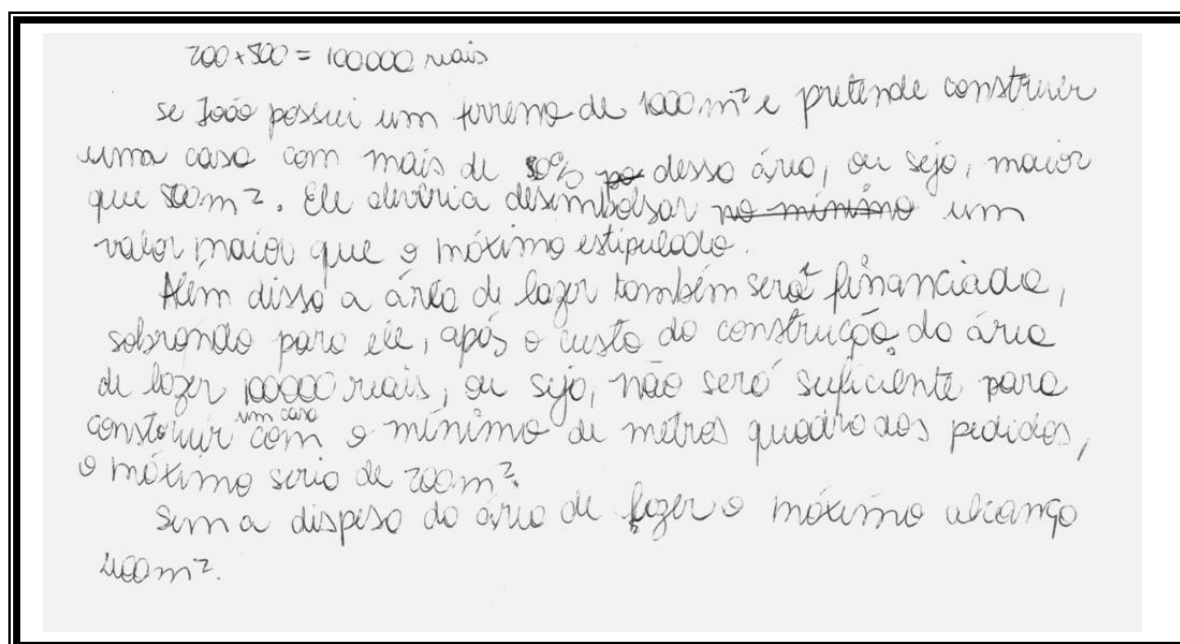 200 x 500 = 100000 reais
se João possui um terreno de 1000m² e pretende construir
uma casa com mais de 50% po dessa área, ou seja, maior
que 500m². Ele deveria desembolsar no mínimo um
valor maior que o máximo estipulado.
Além disso a área de lazer também será financiada,
sobrando para ele, após o custo da construção da área
de lazer 100000 reais, ou seja, não será suficiente para
construir um casa com o mínimo de metros quadrados pedidos,
o máximo seria de 200m².
Sem a dispesa da área de lazer o máximo alcança
400m².